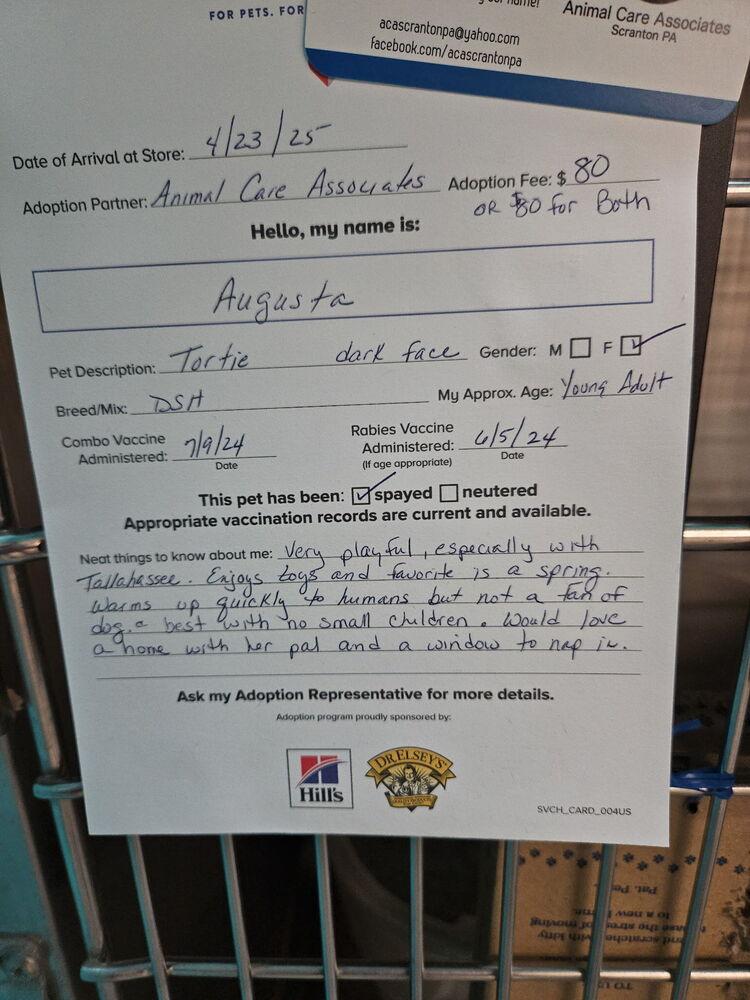 FOR PETS. FOR
Animal Care Associates
Scranton PA
acascrantonpa@yahoo.com
facebook.com/acascrantonpa
Date of Arrival at Store: 4/23/25
Adoption Partner: Animal Care Associates Adoption Fee: $ 80
OR $80 for Both
Hello, my name is:
Augusta
Pet Description: Tortie dark face Gender: M F
Breed/Mix: DSH My Approx. Age: Young Adult
Combo Vaccine Administered: 7/9/24
Date
Rabies Vaccine Administered: 6/5/24
(If age appropriate)
Date
This pet has been: spayed neutered
Appropriate vaccination records are current and available.
Neat things to know about me: Very playful, especially with
Tallahassee. Enjoys toys and favorite is a spring.
Warms up quickly to humans but not a fan of
dog. best with no small children. Would love
a home with her pal and a window to nap in.
Ask my Adoption Representative for more details.
Adoption program proudly sponsored by:
Hill's
DR. ELSEY'S
SVCH_CARD_004US